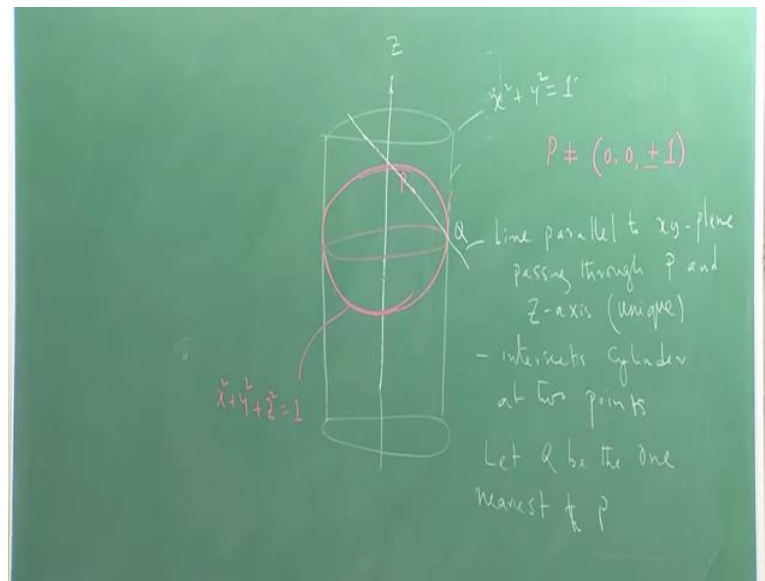 Z
x²+y²=1
P ≠ (0,0,±1)
P
Q
Line parallel to xy-plane
passing through P and
Z-axis (unique)
- intersects cylinder
at two points
x²+y²+z²=1
Let Q be the one
nearest to P